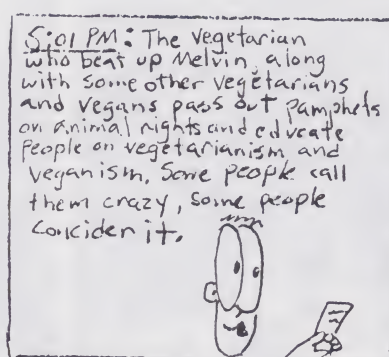 5:01 PM: The vegetarian
who beat up Melvin, along
with some other vegetarians
and vegans pass out pamphets
on animal rights and educate
people on vegetarianism and
veganism. Some people call
them crazy, some people
conciden it.